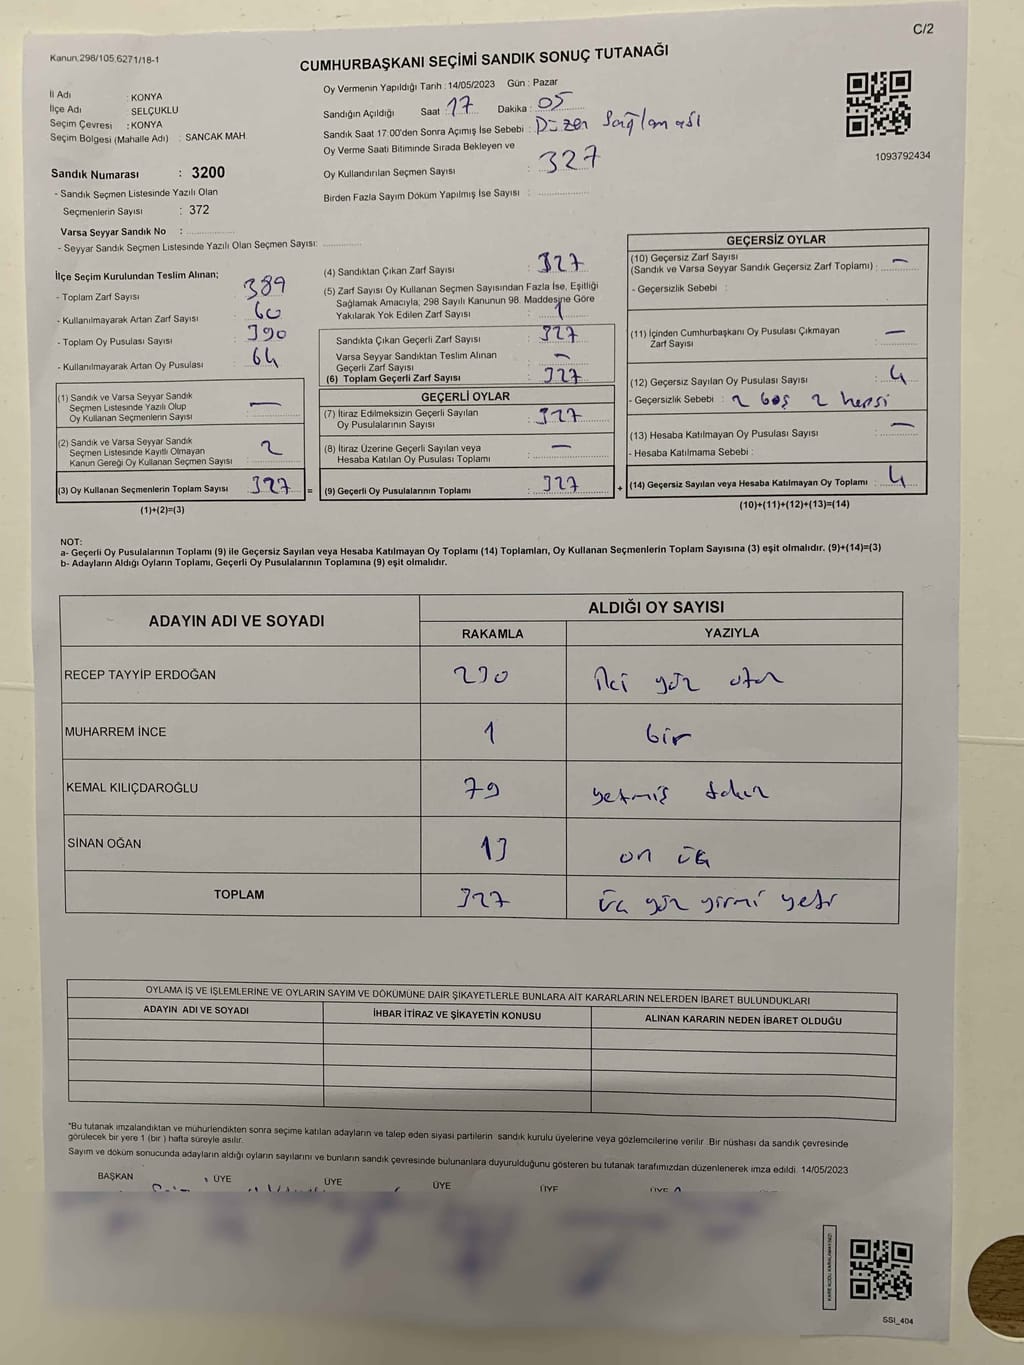 C/2
Kanun.298/105,6271/18-1
CUMHURBAŞKANI SEÇİMİ SANDIK SONUÇ TUTANAĞI
İl Adı : KONYA
İlçe Adı SELÇUKLU
Seçim Çevresi : KONYA
Seçim Bölgesi (Mahalle Adı) : SANCAK MAH.
Oy Vermenin Yapıldığı Tarih : 14/05/2023 Gün : Pazar
Sandığın Açıldığı Saat 17 Dakika : 05
Sandık Saat 17:00'den Sonra Açımış İse Sebebi : Düzen Sağlaması
Oy Verme Saati Bitiminde Sırada Bekleyen ve
Oy Kullandırılan Seçmen Sayısı : 327
Birden Fazla Sayım Döküm Yapılmış İse Sayısı :
1093792434
Sandık Numarası : 3200
- Sandık Seçmen Listesinde Yazılı Olan
Seçmenlerin Sayısı : 372
Varsa Seyyar Sandık No :
- Seyyar Sandık Seçmen Listesinde Yazılı Olan Seçmen Sayısı:
İlçe Seçim Kurulundan Teslim Alınan;
- Toplam Zarf Sayısı 389
- Kullanılmayarak Artan Zarf Sayısı 60
- Toplam Oy Pusulası Sayısı 390
- Kullanılmayarak Artan Oy Pusulası 64
(1) Sandık ve Varsa Seyyar Sandık
Seçmen Listesinde Yazılı Olup
Oy Kullanan Seçmenlerin Sayısı : —
(2) Sandık ve Varsa Seyyar Sandık
Seçmen Listesinde Kayıtlı Olmayan
Kanun Gereği Oy Kullanan Seçmen Sayısı 2
(3) Oy Kullanan Seçmenlerin Toplam Sayısı 327 =
(1)+(2)=(3)
(4) Sandıktan Çıkan Zarf Sayısı : 327
(5) Zarf Sayısı Oy Kullanan Seçmen Sayısından Fazla İse, Eşitliği
Sağlamak Amacıyla, 298 Sayılı Kanunun 98. Maddesine Göre
Yakılarak Yok Edilen Zarf Sayısı : 1
Sandıkta Çıkan Geçerli Zarf Sayısı : 327
Varsa Seyyar Sandıktan Teslim Alınan
Geçerli Zarf Sayısı —
(6) Toplam Geçerli Zarf Sayısı : 327
GEÇERLİ OYLAR
(7) İtiraz Edilmeksizin Geçerli Sayılan
Oy Pusulalarının Sayısı : 327
(8) İtiraz Üzerine Geçerli Sayılan veya
Hesaba Katılan Oy Pusulası Toplamı —
(9) Geçerli Oy Pusulalarının Toplamı : 327 +
GEÇERSİZ OYLAR
(10) Geçersiz Zarf Sayısı
(Sandık ve Varsa Seyyar Sandık Geçersiz Zarf Toplamı) : —
- Geçersizlik Sebebi :
(11) İçinden Cumhurbaşkanı Oy Pusulası Çıkmayan
Zarf Sayısı —
(12) Geçersiz Sayılan Oy Pusulası Sayısı : 4
- Geçersizlik Sebebi : 2 boş 2 hepsi
(13) Hesaba Katılmayan Oy Pusulası Sayısı —
- Hesaba Katılmama Sebebi :
(14) Geçersiz Sayılan veya Hesaba Katılmayan Oy Toplamı : 4
(10)+(11)+(12)+(13)=(14)
NOT:
a- Geçerli Oy Pusulalarının Toplamı (9) ile Geçersiz Sayılan veya Hesaba Katılmayan Oy Toplamı (14) Toplamları, Oy Kullanan Seçmenlerin Toplam Sayısına (3) eşit olmalıdır. (9)+(14)=(3)
b- Adayların Aldığı Oyların Toplamı, Geçerli Oy Pusulalarının Toplamına (9) eşit olmalıdır.
ADAYIN ADI VE SOYADI ALDIĞI OY SAYISI
RAKAMLA YAZIYLA
RECEP TAYYİP ERDOĞAN 230 iki yüz otuz
MUHARREM İNCE 1 bir
KEMAL KILIÇDAROĞLU 79 yetmiş dokuz
SİNAN OĞAN 13 on üç
TOPLAM 327 üç yüz yirmi yedi
OYLAMA İŞ VE İŞLEMLERİNE VE OYLARIN SAYIM VE DÖKÜMÜNE DAİR ŞİKAYETLERLE BUNLARA AİT KARARLARIN NELERDEN İBARET BULUNDUKLARI
ADAYIN ADI VE SOYADI İHBAR İTİRAZ VE ŞİKAYETİN KONUSU ALINAN KARARIN NEDEN İBARET OLDUĞU
"Bu tutanak imzalandıktan ve mühürlendikten sonra seçime katılan adayların ve talep eden siyasi partilerin sandık kurulu üyelerine veya gözlemcilerine verilir. Bir nüshası da sandık çevresinde
görülecek bir yere 1 (bir ) hafta süreyle asılır.
Sayım ve döküm sonucunda adayların aldığı oyların sayılarını ve bunların sandık çevresinde bulunanlara duyurulduğunu gösteren bu tutanak tarafımızdan düzenlenerek imza edildi. 14/05/2023
BAŞKAN ÜYE ÜYE ÜYE ÜYE ÜYE
KARE KODU KARALAMAYINIZ!
SSI_404